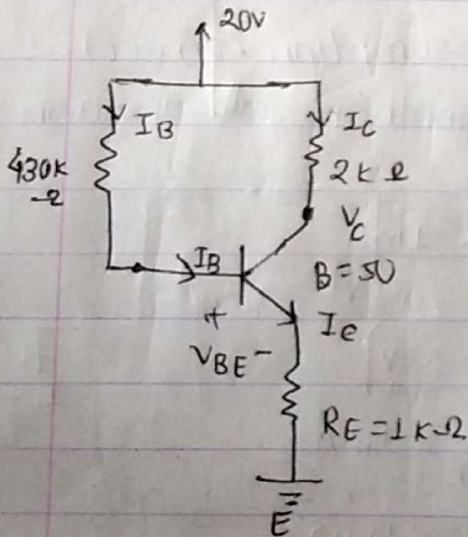 20V
IB
IC
430K
Ω
2K Ω
VC
IB
B = 50
+
Ie
VBE -
RE = 1K Ω
E